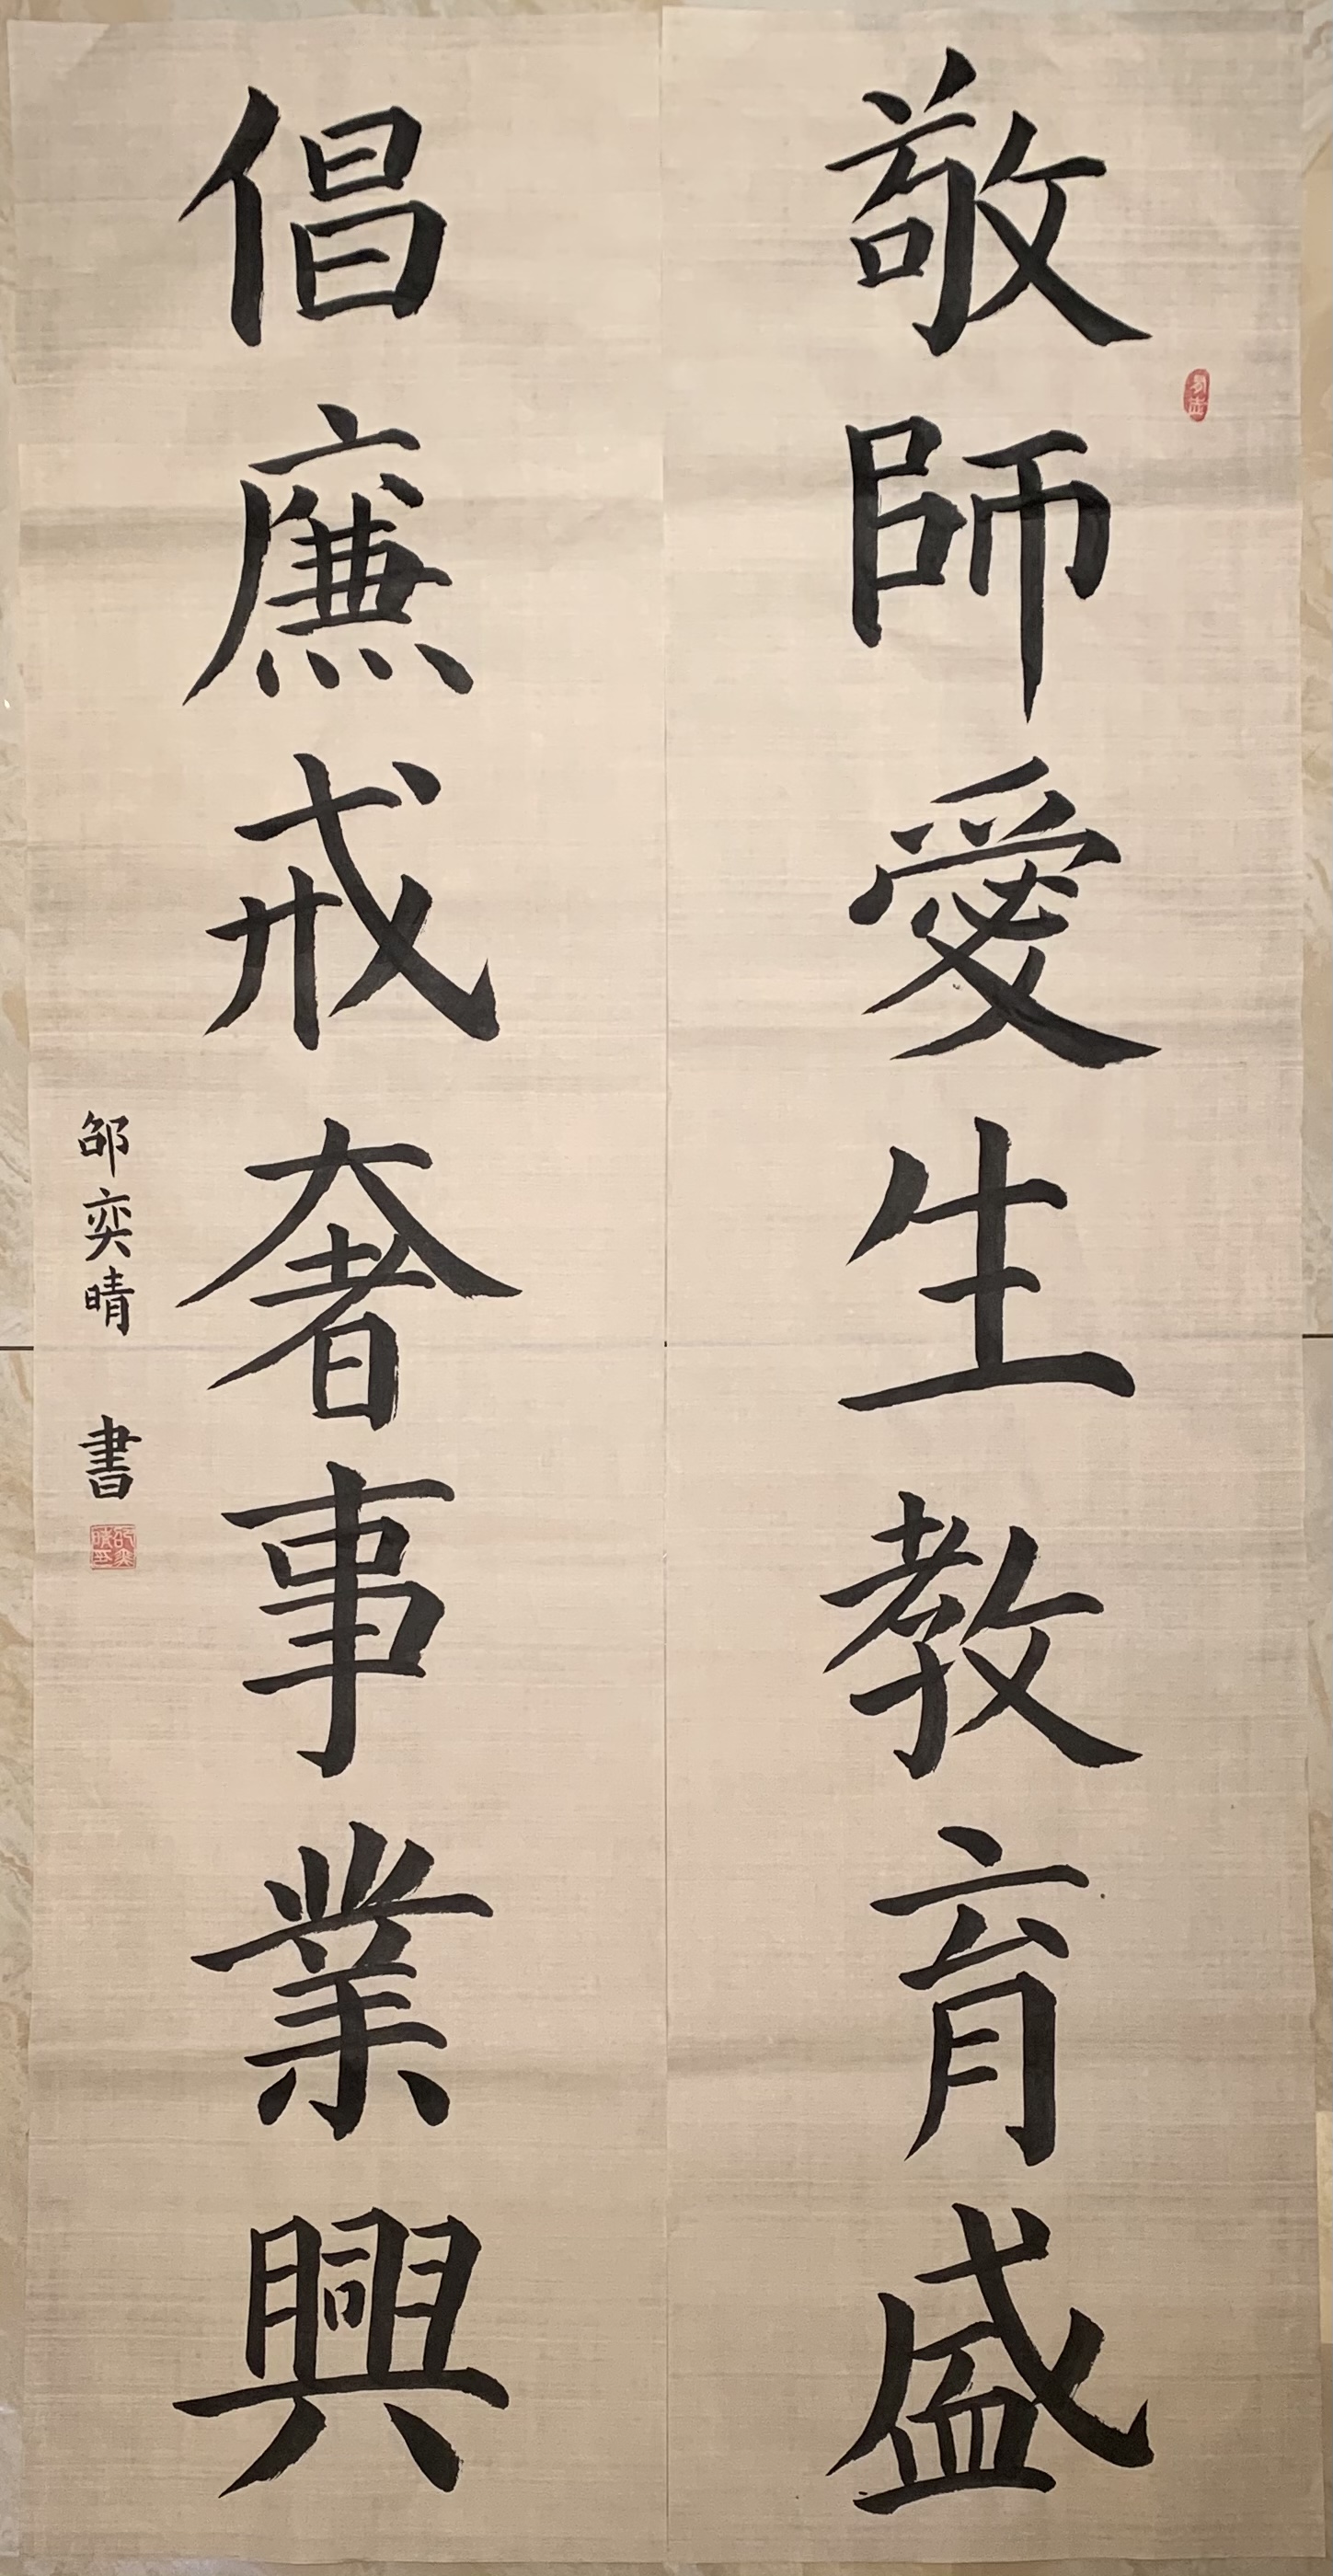 敬師愛生教育盛
倡廉戒奢事業興
邵奕晴 書